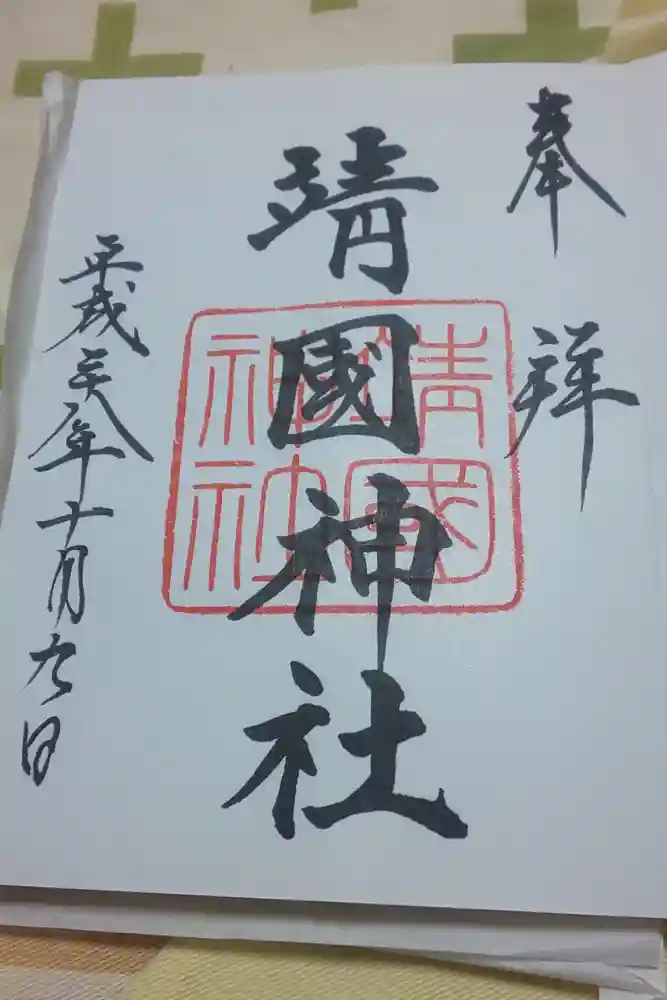 奉拝
靖國神社
靖國神社
平成二十八年十月九日